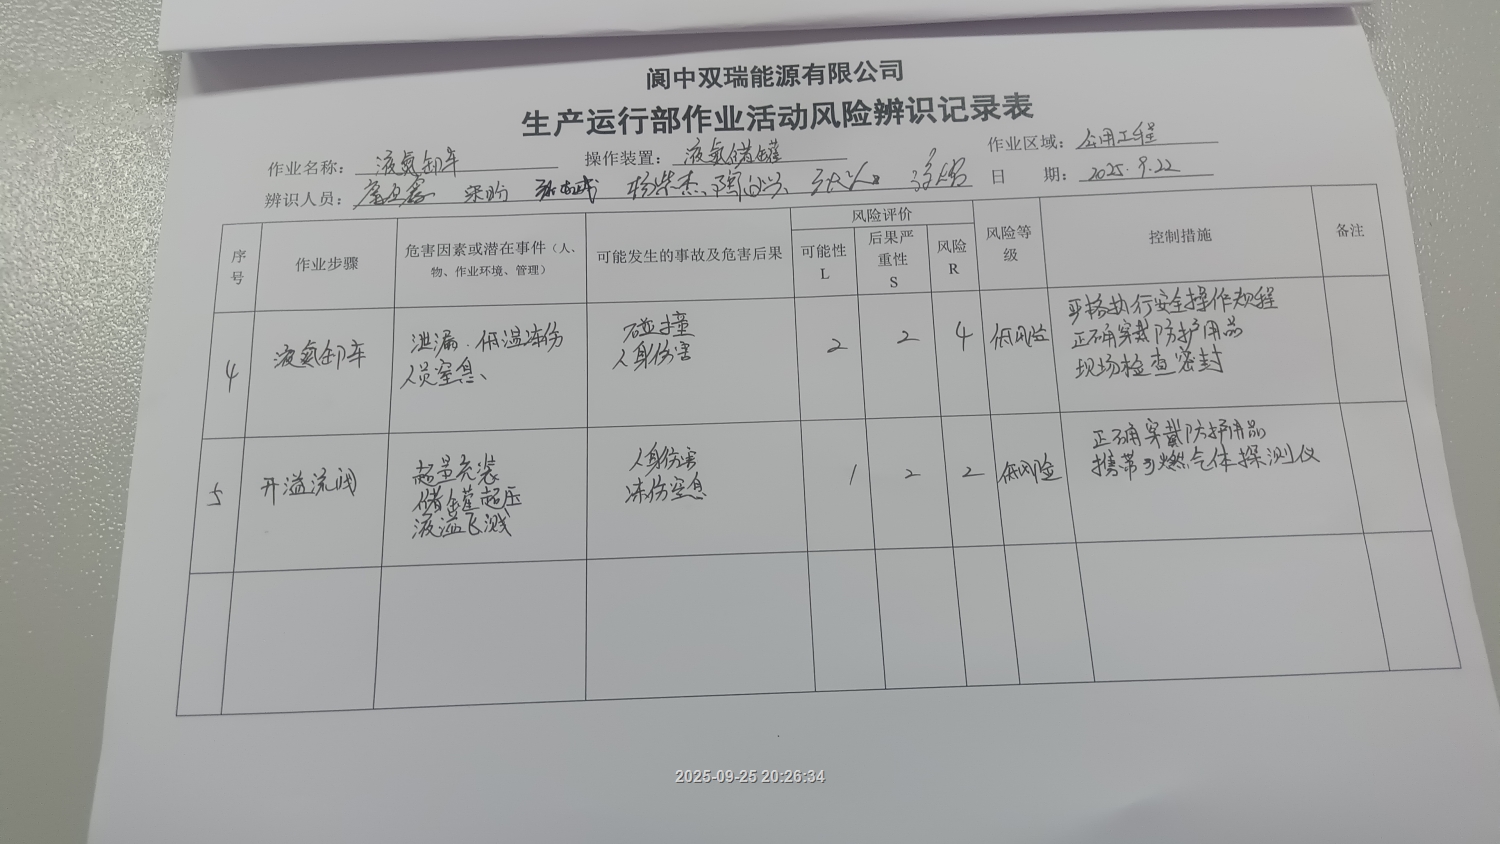 阆中双瑞能源有限公司
生产运行部作业活动风险辨识记录表
作业名称： 液氮卸车 操作装置： 液氮储罐 作业区域： 公用工程
辨识人员： 梁盼 杨紫杰 日 期： 2025.9.22
序号 作业步骤 危害因素或潜在事件（人、物、作业环境、管理） 可能发生的事故及危害后果 风险评价 可能性L 后果严重性S 风险R 风险等级 控制措施 备注
4 液氮卸车 泄漏、低温冻伤 碰撞 2 2 4 低风险 严格执行安全操作规程
人员窒息、 人身伤害 正确穿戴防护用品
现场检查密封
5 开溢流阀 超量充装 人身伤害 1 2 2 低风险 正确穿戴防护用品
储罐超压 冻伤窒息 携带可燃气体探测仪
液溢飞溅
2025-09-25 20:26:34